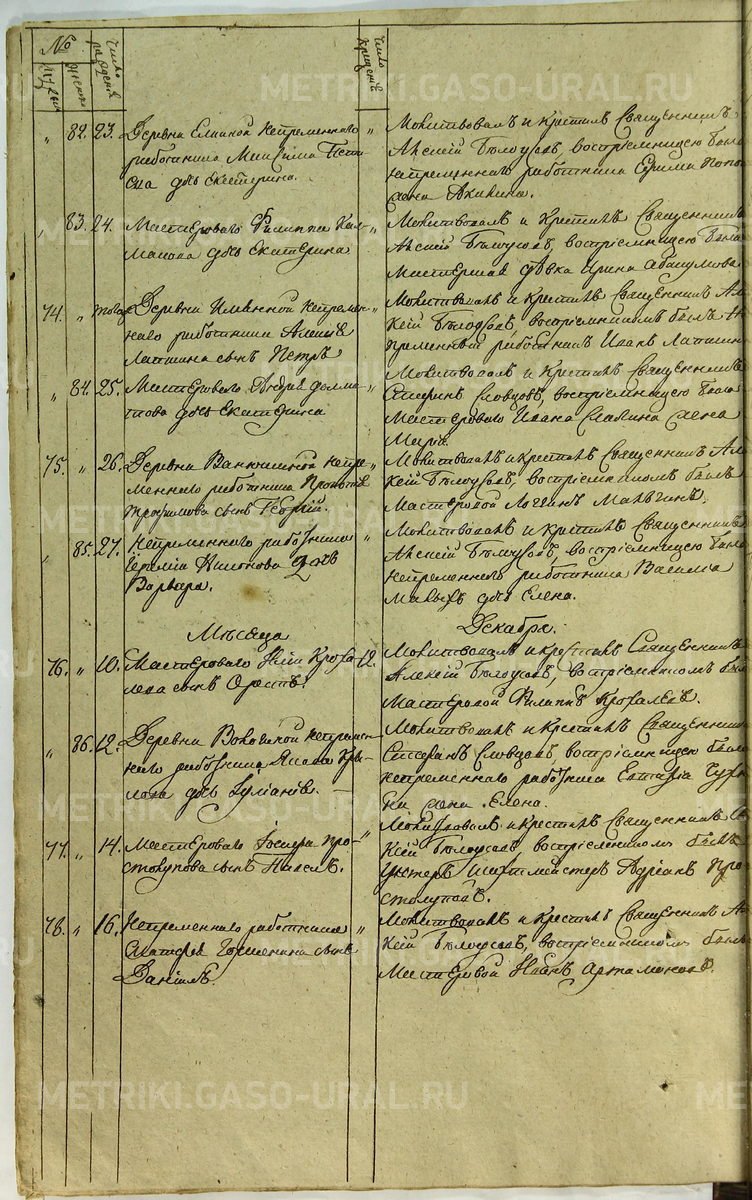 №
Число рожденiя
Число крещенiя
мужска
женска
„ 82. 23. Деревни Елкиной непременнаго „
работника Максима
дочь Екатерина.
Молитвовалъ и крестилъ Священникъ
Алексiй Белоусовъ, воспрiемницею была
непременнаго работника Ефима
жена Акилина.
„ 83. 24. Мастероваго Филиппа Кал- „
макова дочь Екатерина
Молитвовалъ и крестилъ Священникъ
Алексiй Белоусовъ, воспрiемницею была
Мастерская девка Ирина
74. „ тогожъ Деревни непремен-
наго работника Алексея
Лапшина сынъ Петръ
Молитвовалъ и крестилъ Священникъ Але
ксiй Белоусовъ, воспрiемникомъ былъ не
пременный работникъ Иванъ Лапшинъ
„ 84. 25. Мастероваго Андрея Долма- „
това дочь Екатерина
Молитвовалъ и крестилъ Священникъ
Стефанъ Словцовъ, воспрiемницею была
Мастероваго Ивана жена
Марiя.
75. „ 26. Деревни непре- „
меннаго работника
Трофимова сынъ Георгiй.
Молитвовалъ и крестилъ Священникъ Але
ксiй Белоусовъ, воспрiемникомъ былъ
Мастеровой Логгинъ
„ 85. 27. Непременнаго работника „
дочь
Варвара.
Молитвовалъ и крестилъ Священникъ
Алексiй Белоусовъ, воспрiемницею была
непременнаго работника Василiя
Малыхъ дочь Елена.
Месяца Декабря.
76. „ 10. Мастероваго Илiи Кроха- 12.
лева сынъ Орестъ.
Молитвовалъ и крестилъ Священникъ
Алексiй Белоусовъ, воспрiемникомъ былъ
Мастеровой Филиппъ Крохалевъ.
„ 86. 12. Деревни непремен-
наго работника Якова Кры-
лова дочь Iулiанiя.
Молитвовалъ и крестилъ Священникъ
Стефанъ Словцовъ, воспрiемницею была
непременнаго работника
жена Елена.
77. „ 14. Мастероваго Iосифа Про- „
столупова сынъ Павелъ.
Молитвовалъ и крестилъ Священникъ Але
ксiй Белоусовъ, воспрiемникомъ былъ
Унтеръ Шихтмейстеръ Адрiанъ Про-
столуповъ.
78. „ 16. Непременнаго работника „
сынъ
Данiилъ.
Молитвовалъ и крестилъ Священникъ Але
ксiй Белоусовъ, воспрiемникомъ былъ
Мастеровой Иванъ Артамоновъ.
METRIKI.GASO-URAL.RU